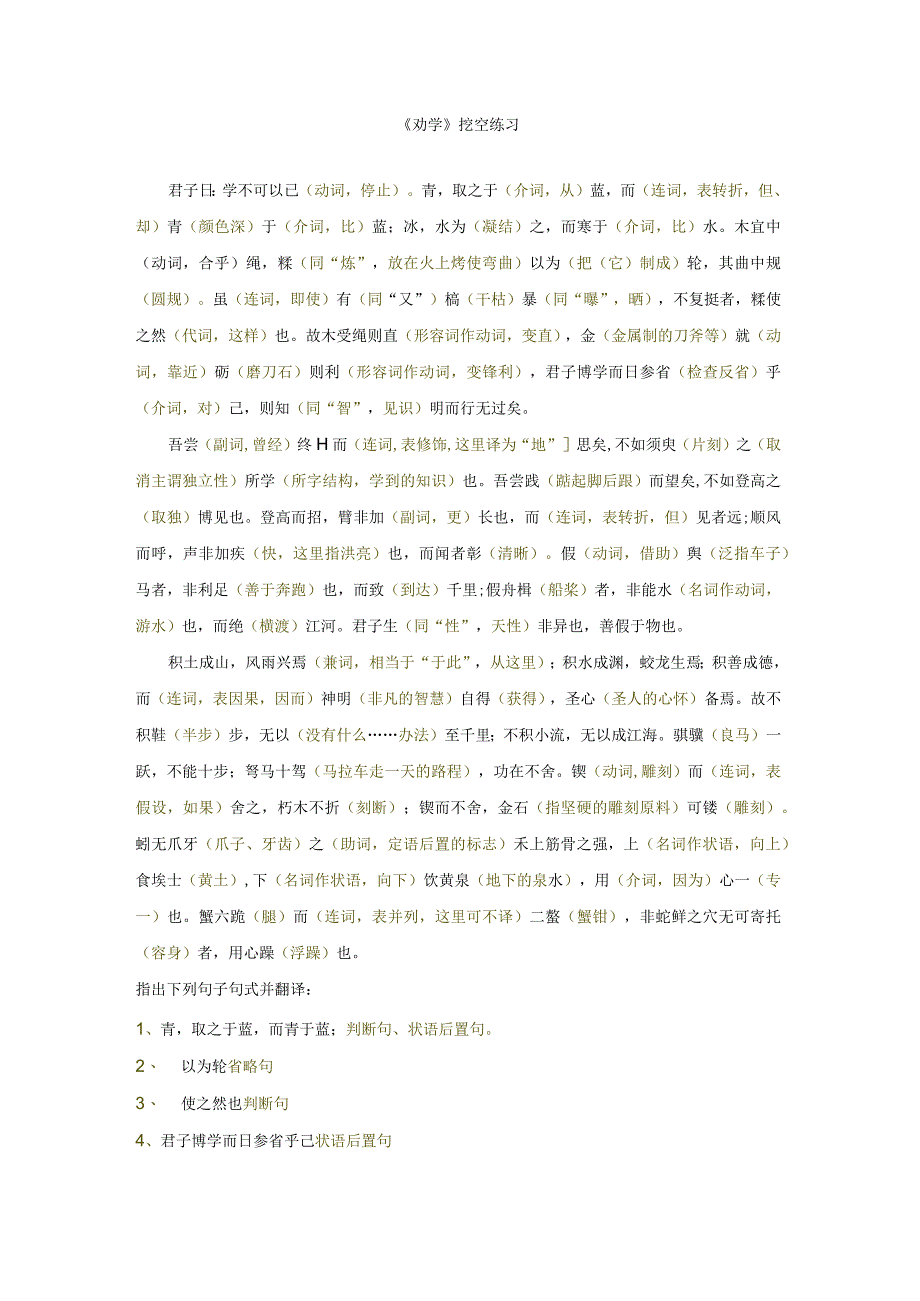 《劝学》挖空练习
君子日：学不可以已（动词，停止）。青，取之于（介词，从）蓝，而（连词，表转折，但、
却）青（颜色深）于（介词，比）蓝；冰，水为（凝结）之，而寒于（介词，比）水。木宜中
（动词，合乎）绳，糅（同“炼”，放在火上烤使弯曲）以为（把（它）制成）轮，其曲中规
（圆规）。虽（连词，即使）有（同“又”）槁（干枯）暴（同“曝”，晒），不复挺者，糅使
之然（代词，这样）也。故木受绳则直（形容词作动词，变直），金（金属制的刀斧等）就（动
词，靠近）砺（磨刀石）则利（形容词作动词，变锋利），君子博学而日参省（检查反省）乎
（介词，对）己，则知（同“智”，见识）明而行无过矣。
吾尝（副词,曾经）终H而（连词,表修饰,这里译为“地”］思矣,不如须臾（片刻）之（取
消主谓独立性）所学（所字结构，学到的知识）也。吾尝践（踮起脚后跟）而望矣,不如登高之
（取独）博见也。登高而招，臂非加（副词，更）长也，而（连词，表转折，但）见者远;顺风
而呼，声非加疾（快，这里指洪亮）也，而闻者彰（清晰）。假（动词，借助）舆（泛指车子）
马者，非利足（善于奔跑）也，而致（到达）千里;假舟楫（船桨）者，非能水（名词作动词，
游水）也，而绝（横渡）江河。君子生（同“性”，天性）非异也，善假于物也。
积土成山，风雨兴焉（兼词，相当于“于此”，从这里）；积水成渊，蛟龙生焉；积善成德，
而（连词，表因果，因而）神明（非凡的智慧）自得（获得），圣心（圣人的心怀）备焉。故不
积鞋（半步）步，无以（没有什么……办法）至千里；不积小流，无以成江海。骐骥（良马）一
跃，不能十步；弩马十驾（马拉车走一天的路程），功在不舍。锲（动词,雕刻）而（连词，表
假设，如果）舍之，朽木不折（刻断）；锲而不舍，金石（指坚硬的雕刻原料）可镂（雕刻）。
蚓无爪牙（爪子、牙齿）之（助词，定语后置的标志）禾上筋骨之强，上（名词作状语，向上）
食埃士（黄土）,下（名词作状语，向下）饮黄泉（地下的泉水），用（介词，因为）心一（专
一）也。蟹六跪（腿）而（连词，表并列，这里可不译）二螯（蟹钳），非蛇鲜之穴无可寄托
（容身）者，用心躁（浮躁）也。
指出下列句子句式并翻译：
1、青，取之于蓝，而青于蓝；判断句、状语后置句。
2、 以为轮省略句
3、 使之然也判断句
4、君子博学而日参省乎己状语后置句